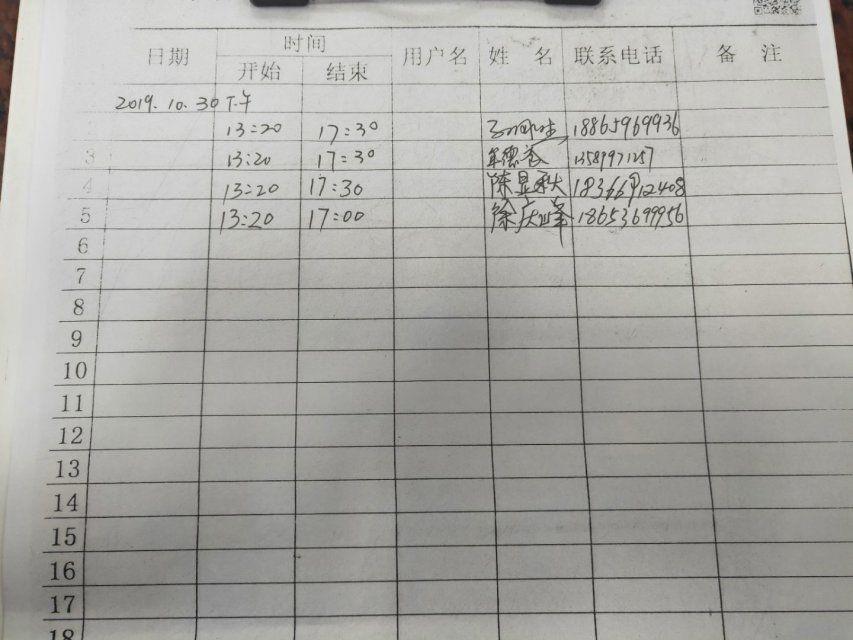 日期 时间 用户名 姓名 联系电话 备注
开始 结束
2019.10.30下午
13:20 17:30 18865969936
3 13:20 17:30 13589971257
4 13:20 17:30 陈显秋
5 13:20 17:00 徐庆峰 18653699956
6
7
8
9
10
11
12
13
14
15
16
17
18